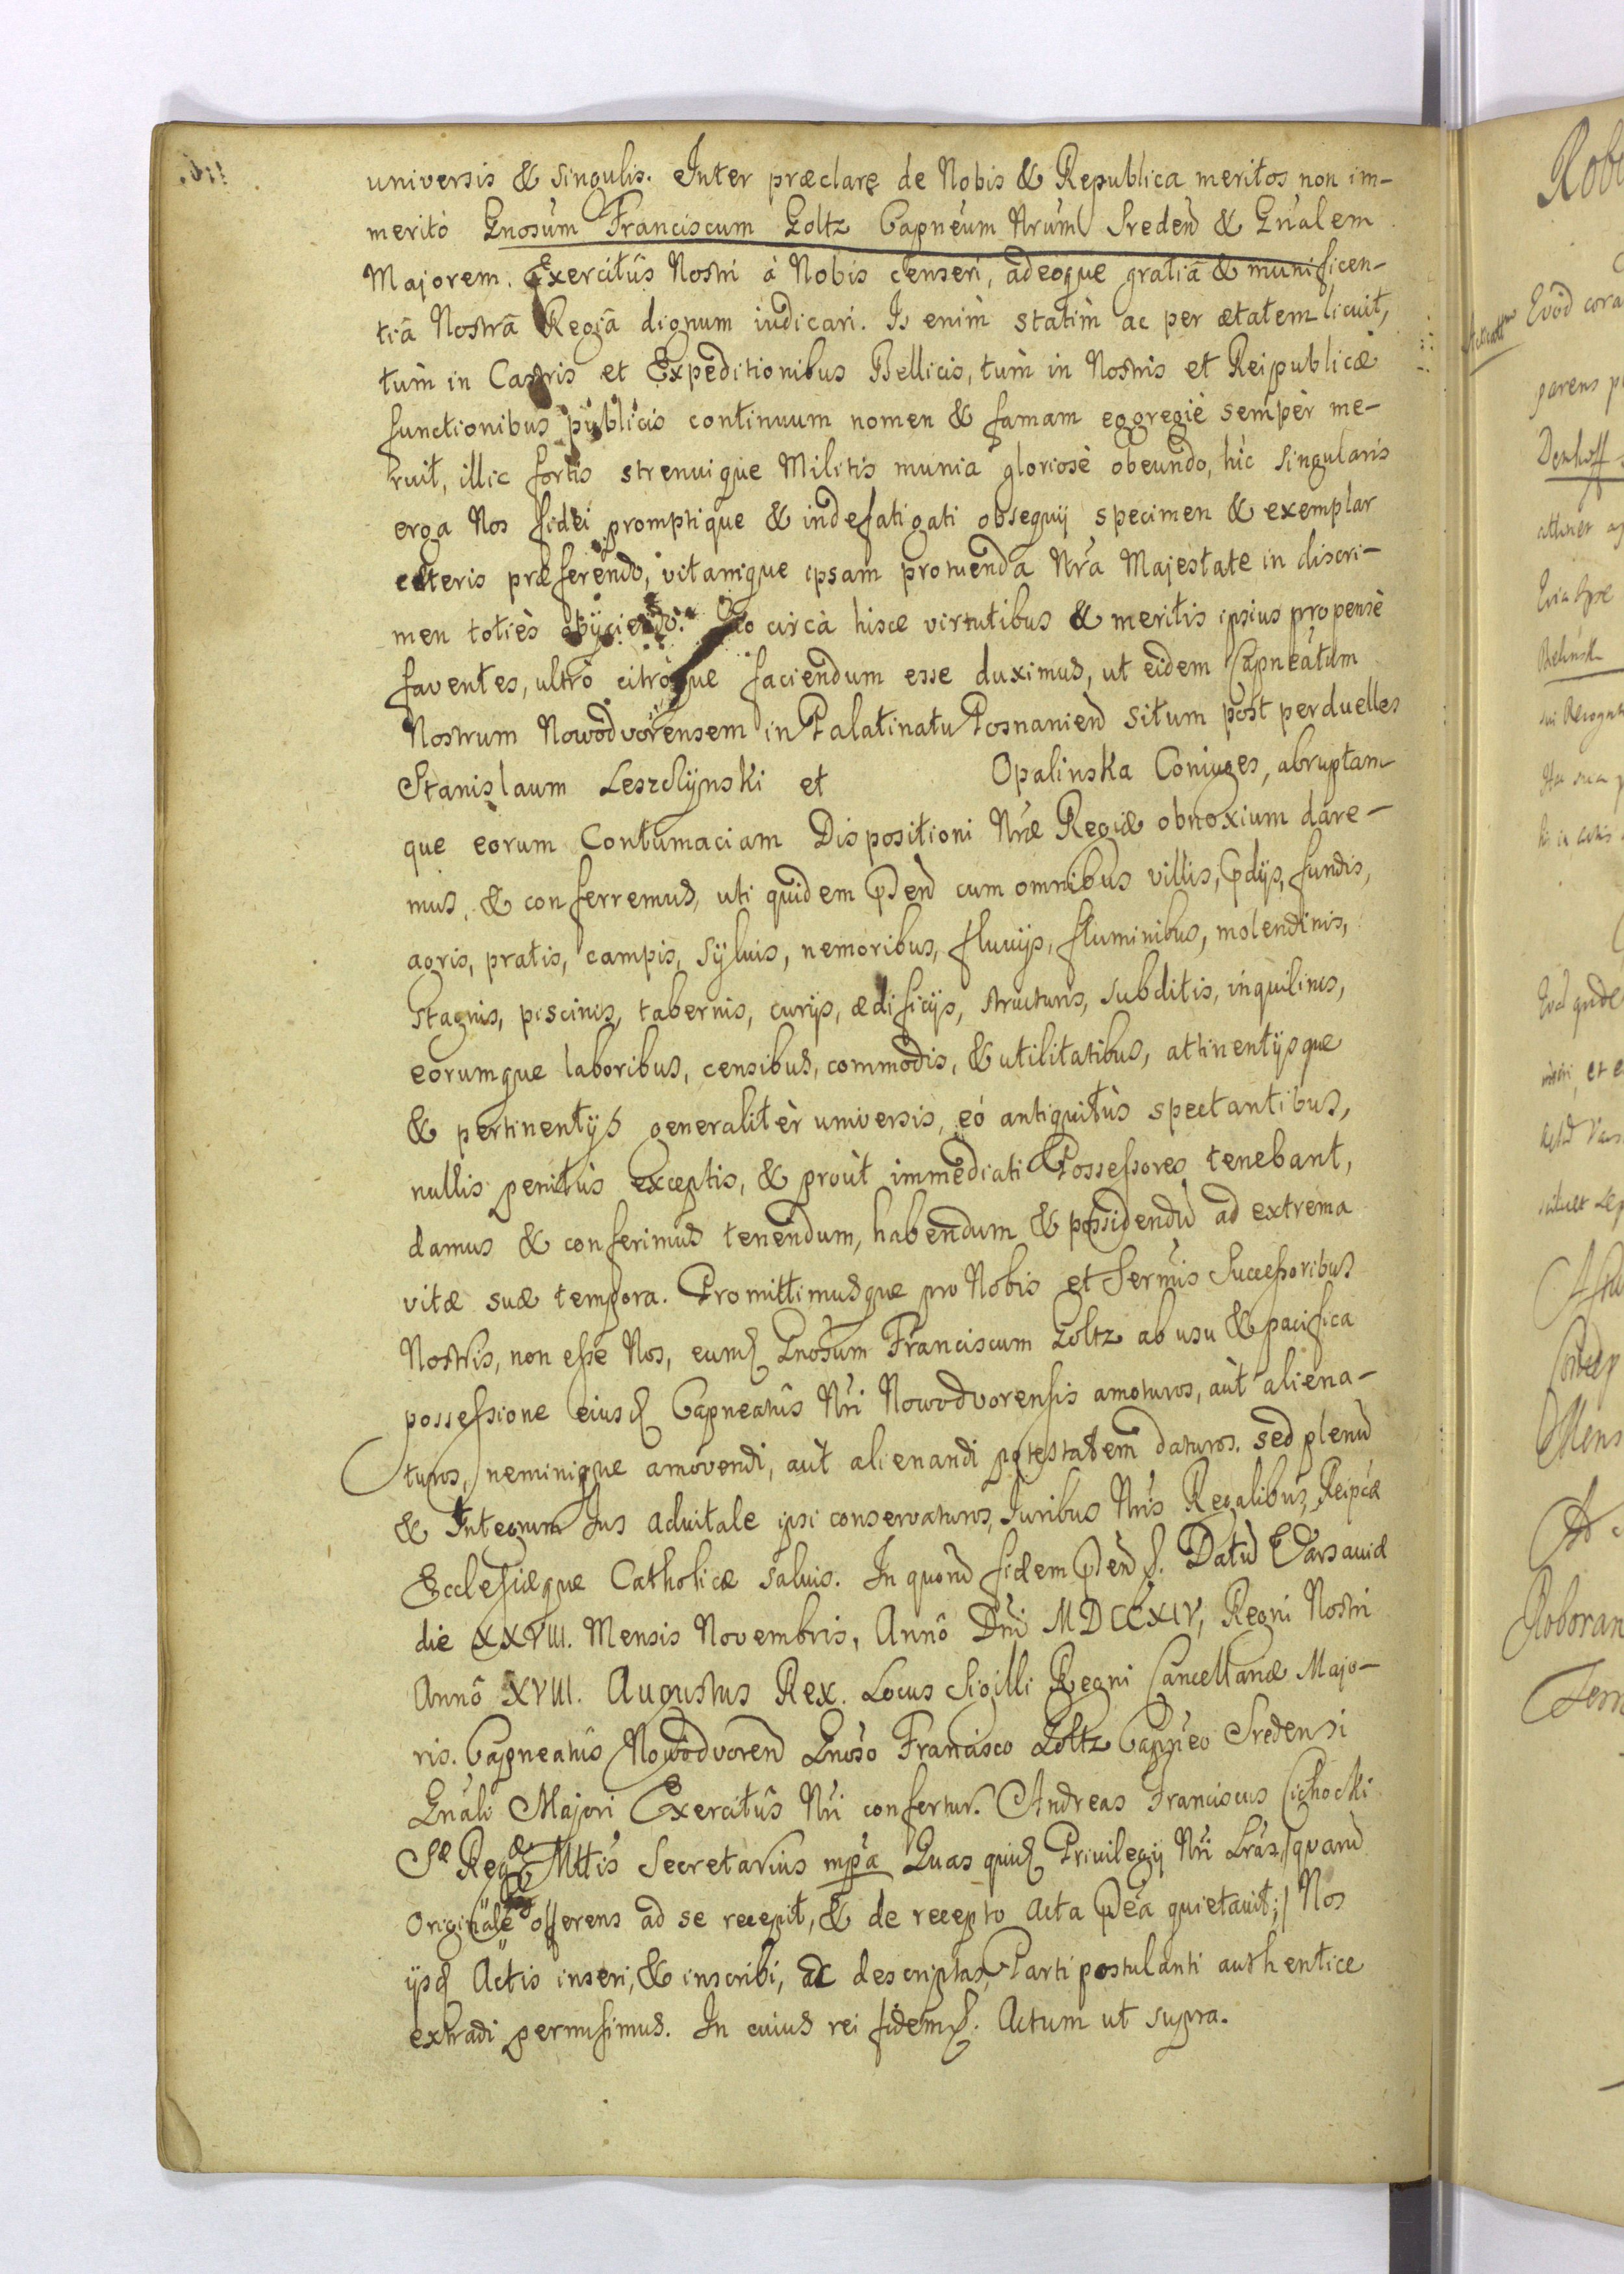 universis & singulis. Inter præclarę de Nobis & Republica meritos non im-
meritò Gnosum Franciscum Goltz Capneum Nrum Sreden & Gnalem
Majorem. Exercitûs Nostri à Nobis censeri, adeoque gratiâ & munificen-
tiâ Nostrâ Regiâ dignum iudicari. Is enim statim ac per ætatem licuit,
tum in Castris et Expeditionibus Bellicis, tum in Nostris et Reipublicæ
functionibus publicis continuum nomen & famam eggregiè sempèr me-
ruit, illic fortis strenuique Militis munia gloriosè obeundo, hic singularis
erga Nos fidei promptique & indefatigati obsequij specimen & exemplar
cæteris præferendo, vitamque ipsam pro tuenda Nra Majestate in discri-
men totiès obijciendo. Quo circà hisce virtutibus & meritis ipsius propensè
faventes, ultrò citròque faciendum esse duximus, ut eidem Capneatum
Nostrum Nowodvorensem in Palatinatu Posnanien situm post perduelles
Stanislaum Leszczynski et Opalinska Coniuges, abruptam
que eorum Contumaciam Dispositioni Nræ Regiæ obnoxium dare-
mus, & conferremus, uti quidem pñ cum omnibus villis, pdijs, fundis,
agris, pratis, campis, sylvis, nemoribus, fluvijs, fluminibus, molendinis,
stagnis, piscinis, tabernis, curijs, ædificijs, structuris, subditis, inquilinis,
eorumque laboribus, censibus, commodis, & utilitatibus, attinentijsque
& pertinentijs generalitèr universis, eó antiquitùs spectantibus,
nullis penitùs exceptis, & proùt immediati Possessores tenebant,
damus & conferimus tenendum, habendum & possidendu ad extrema
vitæ suæ tempora. Promittimusque pro Nobis et Sermis Successoribus
Nostris, non esse Nos, eumq Gnosum Franciscum Goltz ab usu & pacifica
possessione eiusd Capneatûs Nri Nowodvorensis amoturos, aùt aliena-
turos, neminique amovendi, aut alienandi potestatem daturos. sed plenu
& Integrum Jus advitale ipsi conservaturos, Juribus Nris Regalibus, Reipcæ
Ecclesiæque Catholicæ salvis. In quoru fidem Datu Varsaviæ
die XXVIII. Mensis Novembris, Annô Dni MDCCXIV, Regni Nostri
Annô XVIII. Augustus Rex. Locus Sigilli Regni Cancellariæ Majo-
ris. Capneatûs Nowodvoren Gnoso Francisco Goltz Capneo Sredensi
Gnali Majori Exercitûs Nri confertur. Andreas Franciscus Cichocki
Sæ Regæ Mttis Secretarius mpa Quas quid Privilegij Nri Lras, quaru
Originale offerens ad se recepit, & de recepto Acta pñta quietavit; Nos
ijsd Actis inseri, & inscribi, ac descriptas, Parti postulanti authentice
extradi permisimus. In cuius rei fidem. Actum ut supra.